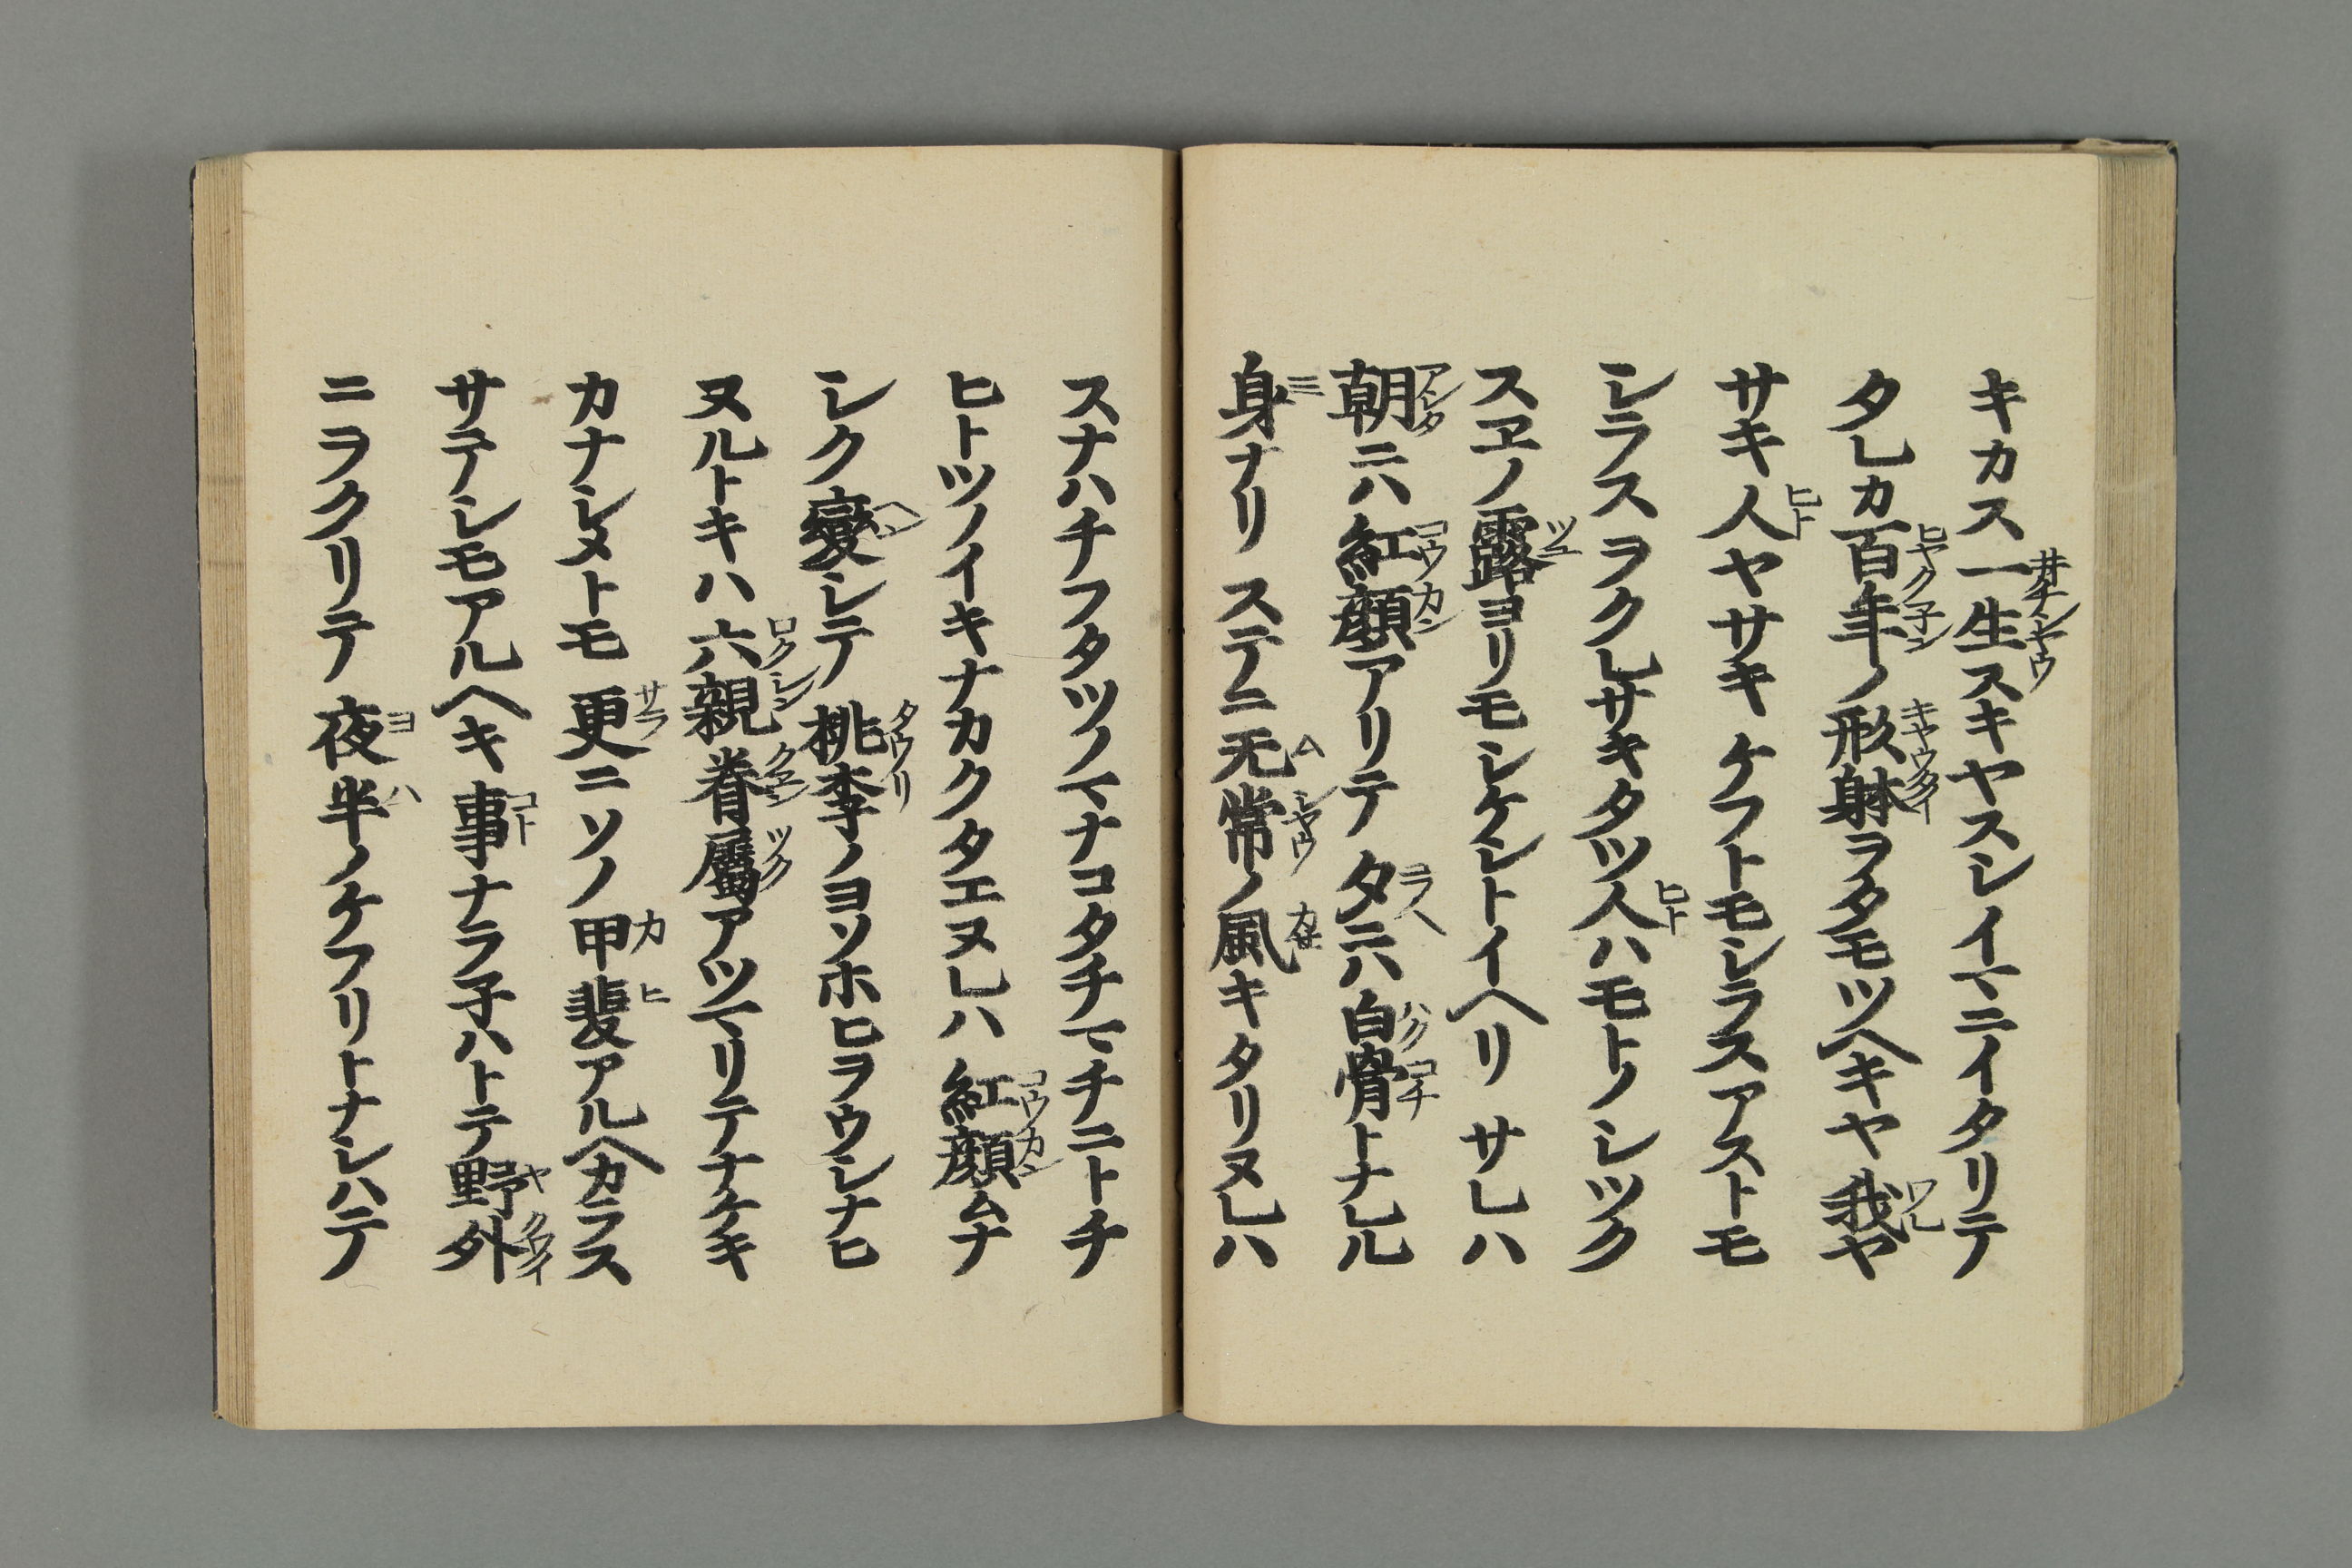 キカス一生スキヤスシイマニイタリテ
タレカ百年ノ形躰ヲタモツヘキヤ我ヤ
サキ人ヤサキケフトモシラスアストモ
シラスヲクレサキタツ人ハモトノシツク
スヱノ露ヨリモシケシトイヘリサレハ
朝ニハ紅顔アリテ夕ニハ白骨トナレル
身ナリステニ无常ノ風キタリヌレハ
スナハチフタツノマナコタチマチニトチ
ヒトツノイキナカクタエヌレハ紅顔ムナ
シク變シテ桃李ノヨソホヒヲウシナヒ
ヌルトキハ六親眷屬アツマリテナケキ
カナシメトモ更ニソノ甲斐アルヘカラス
サテシモアルヘキ事ナラ子ハトテ野外
ニヲクリテ夜半ノケフリトナシハテ